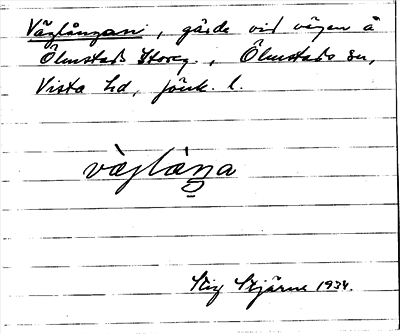 Väglångan, gärde vid vägen å
Ölmstads Storeg., Ölmstads sn,
Vista hd, Jönk. l.
vàglàŋa
Stig Stjärne 1934.